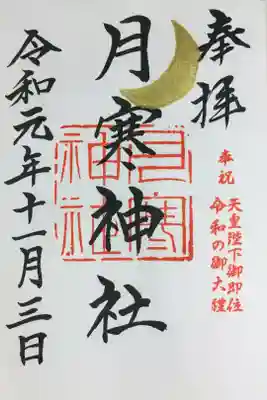 奉拝
奉祝
天皇陛下御即位
令和の御大禮
月寒神社
月寒
神社
令和元年十一月三日